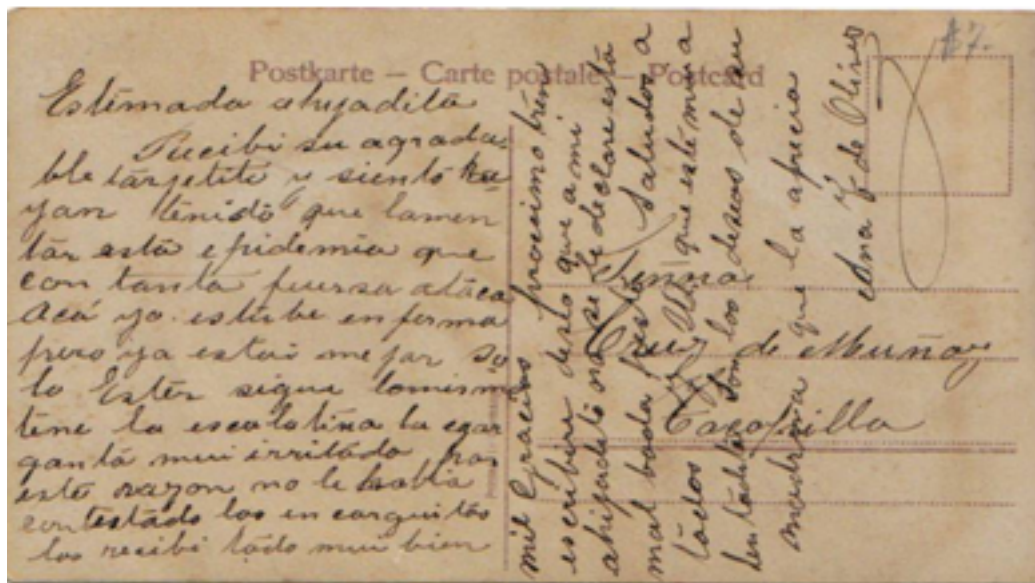 Postkarte – Carte postale – Postcard
#7.
Estemada ahijadita
Recibi su agrada
ble tarjetita y siento
yan tenido que lamen
tar esta epidemia que
con tanta fuersa ataca
Acá yo estube enferma
pero ya estoi mejor so
lo Ester sigue lo mismo
tene la escalatina la gar
ganta mui irritada por
esta razon no le habia
contestado los encarguitos
los recibi todo mui bien
mil gracias procsimo tren
escribire deslo que a mi
ahijadito no se le declare esta
mal bada pes Saludos a
tados que esté mui a
len tadita son los deseos de su
madrina que la aprecia
Ana Z de Olivos
Cruz de Muñoz
Tocopilla